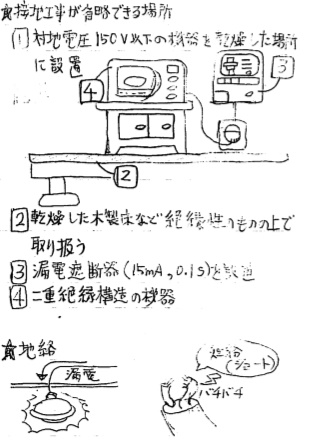 接地工事が省略できる場所
1 対地電圧150V以下の機器を乾燥した場所
に設置
4
3
2
2 乾燥した木製床など絶縁性のものの上で
取り扱う
3 漏電遮断器(15mA, 0.1s)を設置
4 二重絶縁構造の機器
地絡
漏電
短絡
(ショート)
バチバチ